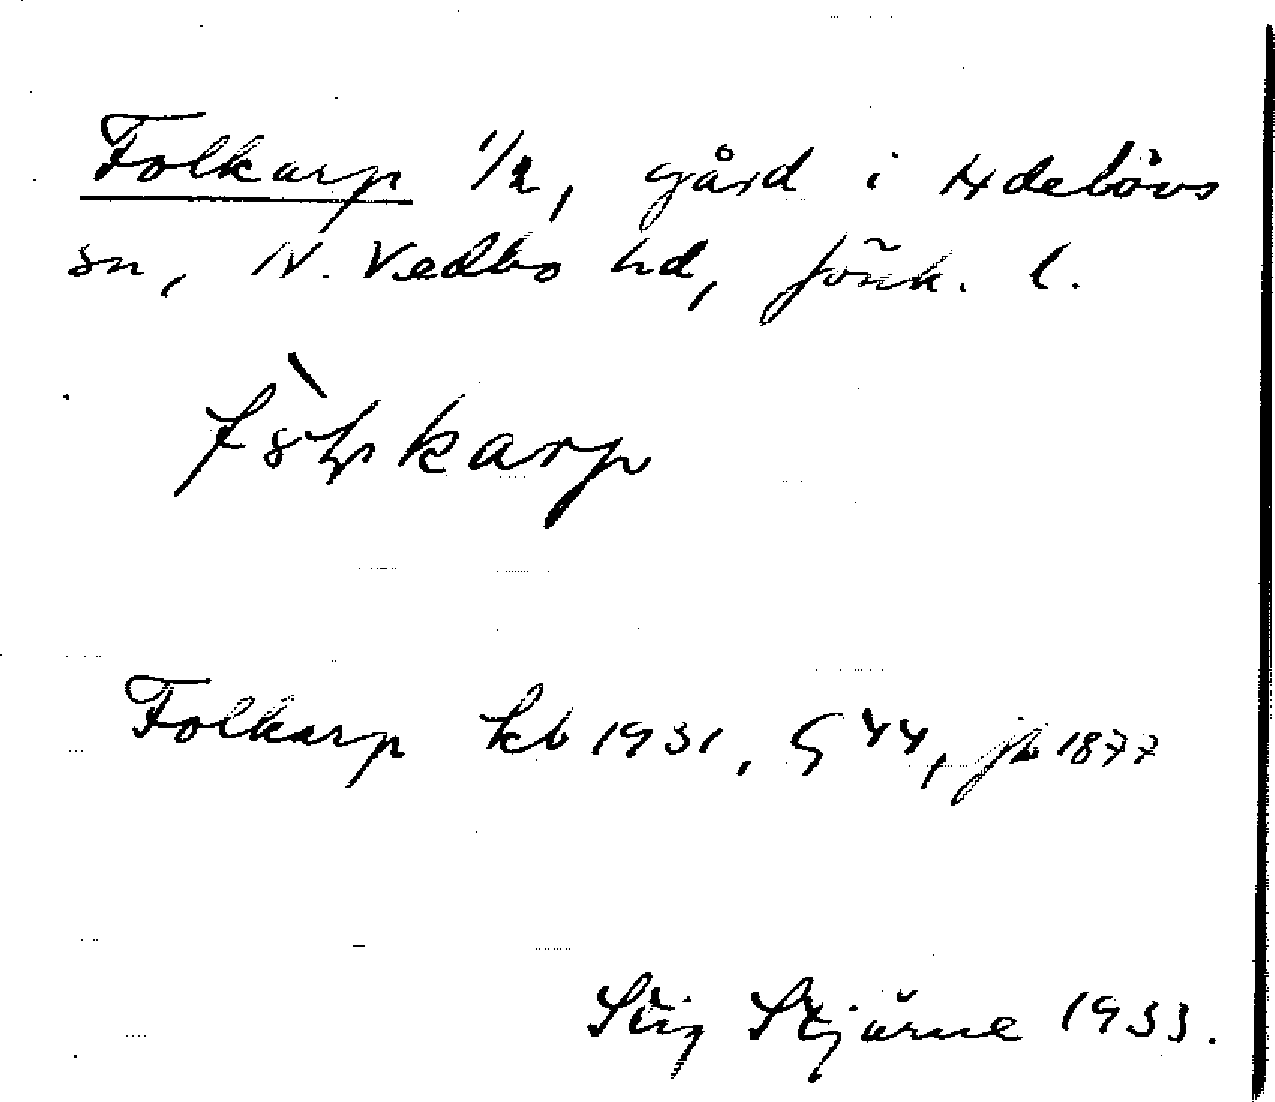 Folkarp 1/2, gård i Adelövs
sn, N. Vedbo hd, Jönk. l.
Folkarp kb 1931, G 44, jb 1877
Stig Stjärne 1933.